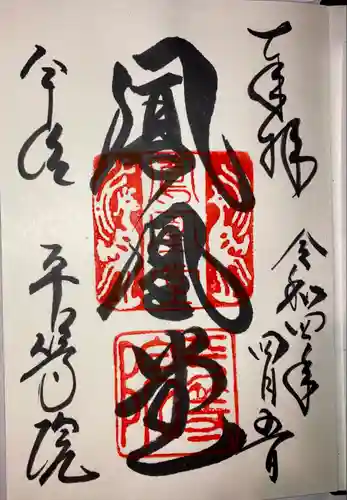 奉拝
令和四年
四月五日
鳳凰堂
平等院